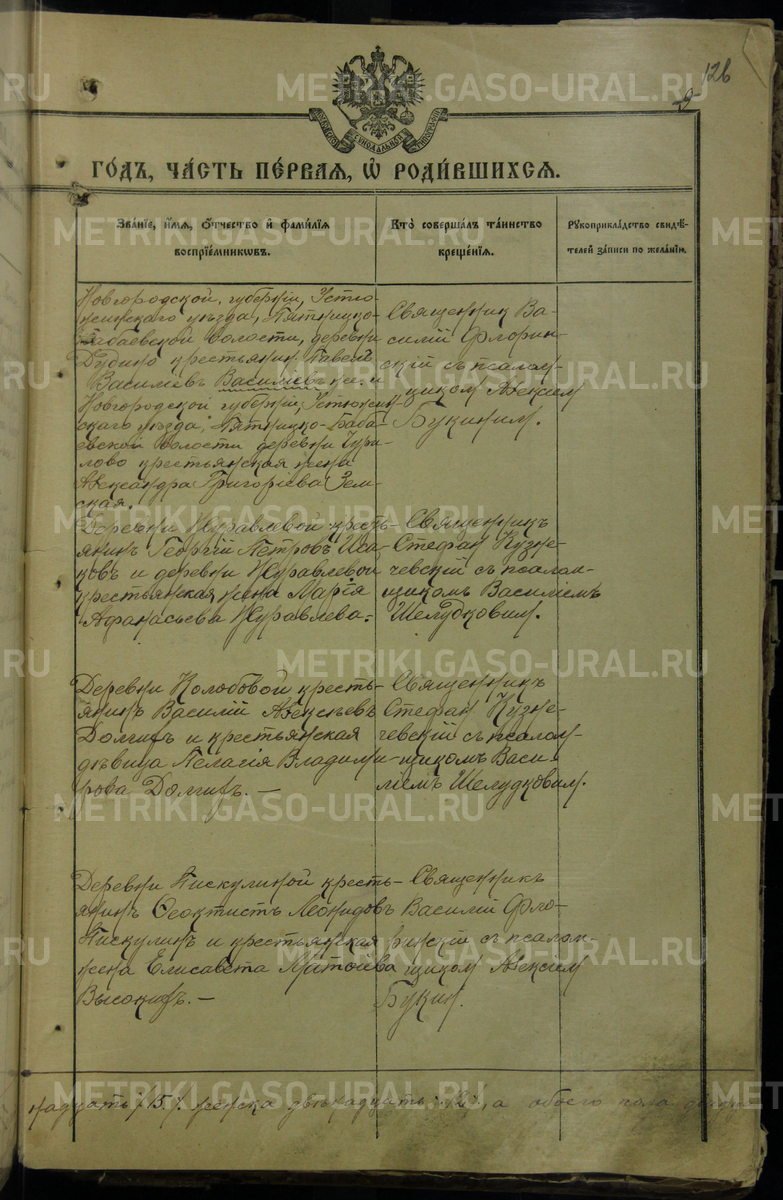 126
МОСКОВСКАЯ СѴНОДАЛЬНАЯ ТИПОГРАФІЯ
ГО́ДЪ, ЧА́СТЬ ПЕ́РВАЯ, Ѡ҆ РОДИ́ВШИХСЯ.
Зва́ніе, и҆́мя, ѻ҆́тчество и҆ фами́лія
воспріе́мниковъ.
Кто̀ соверша́лъ та́инство
креще́нія.
Рукоприкла́дство свидѣ́-
телей за́писи по жела́нію.
Новгородской губерніи, Устю-
женскаго уѣзда, Пятницко-
Бабаевской волости, деревни
Дудино крестьянин Павелъ
Василіевъ Василіевъ же и
Новгородской губерніи, Устюжен-
скаго уѣзда, Пятницко-Баба-
евской волости деревни Чури-
лово крестьянская жена
Александра Григоріева Зем-
ская.
Священник Ва-
силій Флорин-
скій съ псалом-
щиком Алексіем
Букиным.
Деревни Журавлевой кресть-
янинъ Георгій Петровъ Иса-
ковъ и деревни Журавлевой
крестьянская жена Марія
Афанасьева Журавлева.
Священникъ
Стефан Кузне-
чевскій съ псалом-
щикомъ Василіемъ
Шелудковым.
Деревни Колобовой кресть-
янинъ Василій Алексѣевъ
Долгихъ и крестьянская
дѣвица Пелагія Владими-
рова Долгихъ. —
Священникъ
Стефан Кузне-
чевскій съ псалом-
щикомъ Васи-
ліемъ Шелудковым.
Деревни Пискулиной кресть-
янинъ Ѳеоктистъ Леонидовъ
Пискулинъ и крестьянская
жена Елисавета
Высокихъ. —
Священникъ
Василій Фло-
ринскій съ псалом-
щиком Алексіем
Букин.
надцать /15/, женска двѣнадцать /12/, а обоего пола
METRIKI.GASO-URAL.RU